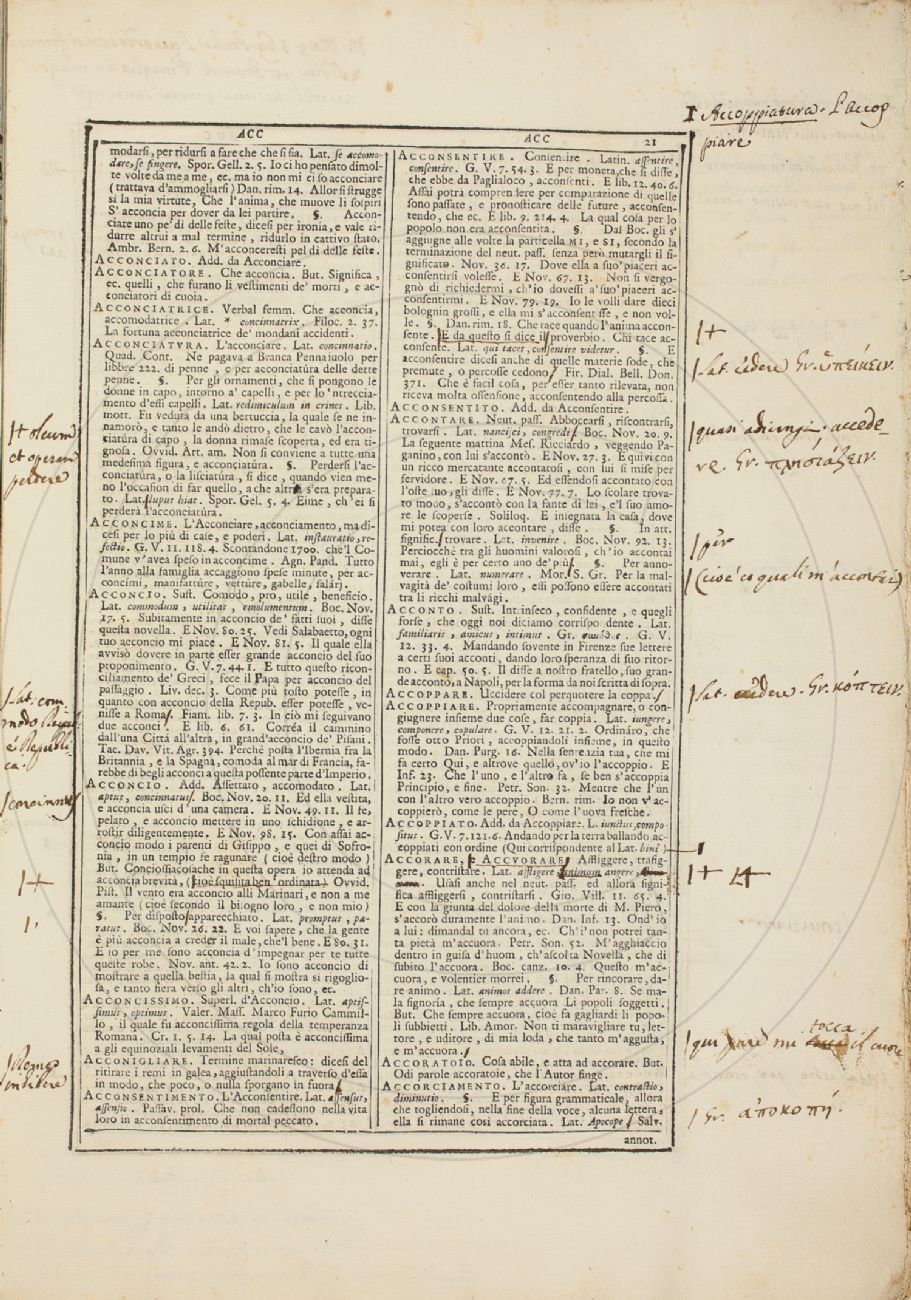 Accoppiatura. L'accop
piare
ACC
ACC
21
modarsi, per ridursi a fare che che si sia. Lat. se accomo-
dare, se fingere. Spor. Gell. 2. 5. Io ci ho pensato dimol-
te volte da me a me, ec. ma io non mi ci so acconciare
(trattava d'ammogliarsi) Dan. rim. 14. Allor si strugge
sì la mia virtute, Che l'anima, che muove li sospiri
S' acconcia per dover da lei partire. §. Accon-
ciare uno pe' dì delle feste, dicesi per ironia, e vale ri-
durre altrui a mal termine, ridurlo in cattivo stato.
Ambr. Bern. 2. 6. M'acconceresti pel dì delle feste.
ACCONCIATO. Add. da Acconciare.
ACCONCIATORE. Che acconcia. But. Significa,
ec. quelli, che furano li vestimenti de' morti, e ac-
conciatori di cuoia.
ACCONCIATRICE. Verbal femm. Che acconcia,
accomodatrice. Lat. * concinnatrix. Filoc. 2. 37.
La fortuna acconciatrice de' mondani accidenti.
ACCONCIATURA. L'acconciare. Lat. concinnatio.
Quad. Cont. Ne pagava a Branca Pennaiuolo per
libbre 222. di penne, e per acconciatura delle dette
penne. §. Per gli ornamenti, che si pongono le
donne in capo, intorno a' capelli, e per lo 'ntrecciа-
mento d'essi capelli. Lat. redimiculum in crines. Lib.
mott. Fu veduta da una bertuccia, la quale se ne in-
namorò, e tanto le andò dietro, che le cavò l'accon-
ciatura di capo, la donna rimase scoperta, ed era ti-
gnosa. Ovvid. Art. am. Non si conviene a tutte una
medesima figura, e acconciatúra. §. Perdersi l'ac-
conciatúra, o la lisciatura, si dice, quando vien me-
no l'occasion di far quello, a che altri s'era prepara-
to. Lat. lupus hiat. Spor. Gel. 5. 4. Eime, ch' ei si
perderà l'acconciatura.
ACCONCIME. L'Acconciare, acconciamento, ma di-
cesi per lo più di case, e poderi. Lat. instauratio, re-
fectio. G. V. 11. 118. 4. Scontandone 1700. che'l Co-
mune v'avea speso in acconcime. Agn. Pand. Tutto
l'anno alla famiglia accaggiono spese minute, per ac-
concimi, manifatture, vetture, gabelle, salárj.
ACCONCIO. Sust. Comodo, pro, utile, beneficio.
Lat. commodum, utilitas, emolumentum. Boc. Nov.
17. 5. Subitamente in acconcio de' fatti suoi, disse
questa novella. E Nov. 80. 25. Vedi Salabaetto, ogni
tuo acconcio mi piace. E Nov. 81. 5. Il quale ella
avvisò dovere in parte esser grande acconcio del suo
proponimento. G. V. 7. 44. 1. E tutto questo ricon-
ciliamento de' Greci, fece il Papa per acconcio del
passaggio. Liv. dec. 3. Come più tosto potesse, in
quanto con acconcio della Repub. esser potesse, ve-
nisse a Roma. Fiam. lib. 7. 3. In ciò mi seguivano
due acconci. E lib. 6. 61. Corréa il cammino
dall'una Città all'altra, in grand'acconcio de' Pisani.
Tac. Dav. Vit. Agr. 394. Perchè posta l'Ibernia fra la
Britannia, e la Spagna, comoda al mar di Francia, fa-
rebbe di begli acconci a questa possente parte d'Imperio.
ACCONCIO. Add. Assettato, accomodato. Lat.
aptus, concinnatus. Boc. Nov. 20. 11. Ed ella vestita,
e acconcia uscì d'una camera. E Nov. 49. 11. Il fe,
pelato, e acconcio mettere in uno schidione, e ar-
rostir diligentemente. E Nov. 98. 15. Con assai ac-
concio modo i parenti di Gisippo, e quei di Sofro-
nia, in un tempio fe ragunare (cioè destro modo)
But. Conciossiacosache in questa opera io attenda ad
acconcia brevità, (cioè squisita ben' ordinata). Ovvid.
Pist. Il vento era acconcio alli Marinari, e non a me
amante (cioè secondo il bisogno loro, e non mio)
§. Per disposto, apparecchiato. Lat. promptus, pa-
ratus. Boc. Nov. 26. 22. E voi sapete, che la gente
è più acconcia a creder il male, che'l bene. E 80. 31.
E io per me sono acconcia d'impegnar per te tutte
queste robe. Nov. ant. 42. 2. Io sono acconcio di
mostrare a quella bestia, la qual si mostra sì rigoglio-
sa, e tanto fiera verso gli altri, ch'io sono, ec.
ACCONCISSIMO. Superl. d'Acconcio. Lat. aptis-
simus, optimus. Valer. Mass. Marco Furio Cammil-
lo, il quale fu acconcissima regola della temperanza
Romana. Cr. 1. 5. 14. La qual posta è acconcissima
a gli equinozziali levamenti del Sole,
ACCONIGLIARE. Termine marinaresco: dicesi del
ritirare i remi in galea, aggiustandoli a traverso d'essa
in modo, che poco, o nulla sporgano in fuora
ACCONSENTIMENTO. L'Acconsentire. Lat. assensus,
assensio. Passav. prol. Che non cadessono nella vita
loro in acconsentimento di mortal peccato.
ACCONSENTIRE. Consentire. Latin. assentire,
consentire. G. V. 7. 54. 3. E per moneta, che si disse,
che ebbe da Paglialoco, acconsentì. E lib. 12. 40. 6.
Assai potrà comprendere per comparazione di quelle
sono passate, e pronosticare delle future, acconsen-
tendo, che ec. E lib. 9. 214. 4. La qual cosa per lo
popolo non era acconsentita. §. Dal Boc. gli s'
aggiugne alle volte la particella MI, e SI, secondo la
terminazione del neut. pass. senza però mutargli il si-
gnificato. Nov. 36. 17. Dove ella a suo' piaceri ac-
consentirsi volesse. E Nov. 67. 13. Non si vergo-
gnò di richiedermi, ch'io dovessi a' suo' piaceri ac-
consentirmi. E Nov. 79. 19. Io le volli dare dieci
bolognin grossi, e ella mi s'acconsentisse, e non vol-
le. §. Dan. rim. 18. Che tace quando l'anima accon-
sente. E da questo si dice il proverbio. Chi tace ac-
consente. Lat. qui tacet, consentire videtur. §. E
acconsentire dicesi anche di quelle materie sode, che
premute, o percosse cedono. Fir. Dial. Bell. Don.
371. Che è facil cosa, per esser tanto rilevata, non
riceva molta offensione, acconsentendo alla percossa.
ACCONSENTITO. Add. da Acconsentire.
ACCONTARE. Neut. pass. Abboccarsi, riscontrarsi,
trovarsi. Lat. nancisci, congredi. Boc. Nov. 20. 9.
La seguente mattina Mes. Ricciardo, veggendo Pa-
ganino, con lui s'accontò. E Nov. 27. 3. E quivi con
un ricco mercatante accontatosi, con lui si mise per
servidore. E Nov. 67. 5. Ed essendosi accontato con
l'oste suo, gli disse. E Nov. 77. 7. Lo scolare trova-
to modo, s'accontò con la fante di lei, e'l suo amo-
re le scoperse. Soliloq. E insegnata la casa, dove
mi potea con loro accontare, disse. §. In att.
signific. trovare. Lat. invenire. Boc. Nov. 92. 13.
Perciocchè tra gli huomini valorosi, ch'io accontai
mai, egli è per certo uno de' più. §. Per anno-
verare. Lat. numerare. Mor. S. Gr. Per la mal-
vagità de' costumi loro, essi possono essere accontati
tra li ricchi malvági.
ACCONTO. Sust. Intrinseco, confidente, e quegli
forse, che oggi noi diciamo corrispondente. Lat.
familiaris, amicus, intimus. Gr. G. V.
12. 33. 4. Mandando sovente in Firenze sue lettere
a certi suoi acconti, dando loro speranza di suo ritor-
no. E cap. 50. 5. Il disse a nostro fratello, suo gran-
de acconto, a Napoli, per la forma da noi scritta di sopra.
ACCOPPARE. Uccidere col perquotere la coppa.
ACCOPPIARE. Propriamente accompagnare, o con-
giugnere insieme due cose, far coppia. Lat. iungere,
componere, copulare. G. V. 12. 21. 2. Ordináro, che
fosse otto Priori, accoppiandoli insieme, in questo
modo. Dan. Purg. 16. Nella sentenzia tua, che mi
fa certo Quì, e altrove quello, ov'io l'accoppio. E
Inf. 23. Che l'uno, e l'altro fa, se ben s'accoppia
Principio, e fine. Petr. Son. 32. Mentre che l'un
con l'altro vero accoppio. Bern. rim. Io non v'ac-
coppierò, come le pere, O come l'uova fresche.
ACCOPPIATO. Add. da Accoppiare. L. iunctus, compo-
situs. G. V. 7. 121. 6. Andando per la terra ballando ac-
coppiati con ordine (Qui corrispondente al Lat. bini)
ACCORARE, e ACCVORARE. Affliggere, trafig-
gere, contristare. Lat. affligere, animum angere,
Usasi anche nel neut. pass. ed allora signi-
fica affliggersi, contristarsi. Gio. Vill. 11. 65. 4.
E con la giunta del dolore della morte di M. Piero,
s'accorò duramente l'animo. Dan. Inf. 13. Ond'io
a lui: dimandal tu ancora, ec. Ch'i' non potrei tan-
ta pietà m'accuora. Petr. Son. 52. M'agghiaccio
dentro in guisa d'huom, ch'ascolta Novella, che di
subito l'accuora. Boc. canz. 10. 4. Questo m'ac-
cuora, e volentier morrei. §. Per rincorare, da-
re animo. Lat. animos addere. Dan. Par. 8. Se ma-
la signoria, che sempre accuora Li popoli soggetti.
But. Che sempre accuora, cioè fa gagliardi li popo-
li subbietti. Lib. Amor. Non ti maravigliare tu, let-
tore, e uditore, di mia loda, che tanto m'aggusta,
e m'accuora.
ACCORATOIO. Cosa abile, e atta ad accorare. But.
Odi parole accoratoie, che l'Autor finge.
ACCORCIAMENTO. L'accorciare. Lat. contractio,
diminutio. §. E per figura grammaticale, allora
che togliendosi, nella fine della voce, alcuna lettera,
ella si rimane così accorciata. Lat. Apocope. Salv.
annot.
oleum
et operam
perdere
Lat. com
modo Reipub
Republi
ca.
concinnus
Remos
inhibere
Lat. cedere Gr. ὑπείκειν.
quasi adiungi. accede-
re. Gr.
per
(cioè co quali m'accontai)
Lat. cædere. Gr. κόπτειν.
tocca
qui pare mi il cuore
Gr. ἀποκοπή.